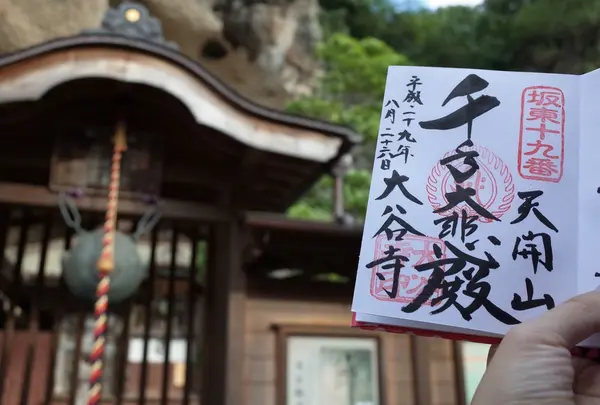 坂東十九番
天開山
千手大悲殿
平成二十九年
八月二十六日
大谷寺